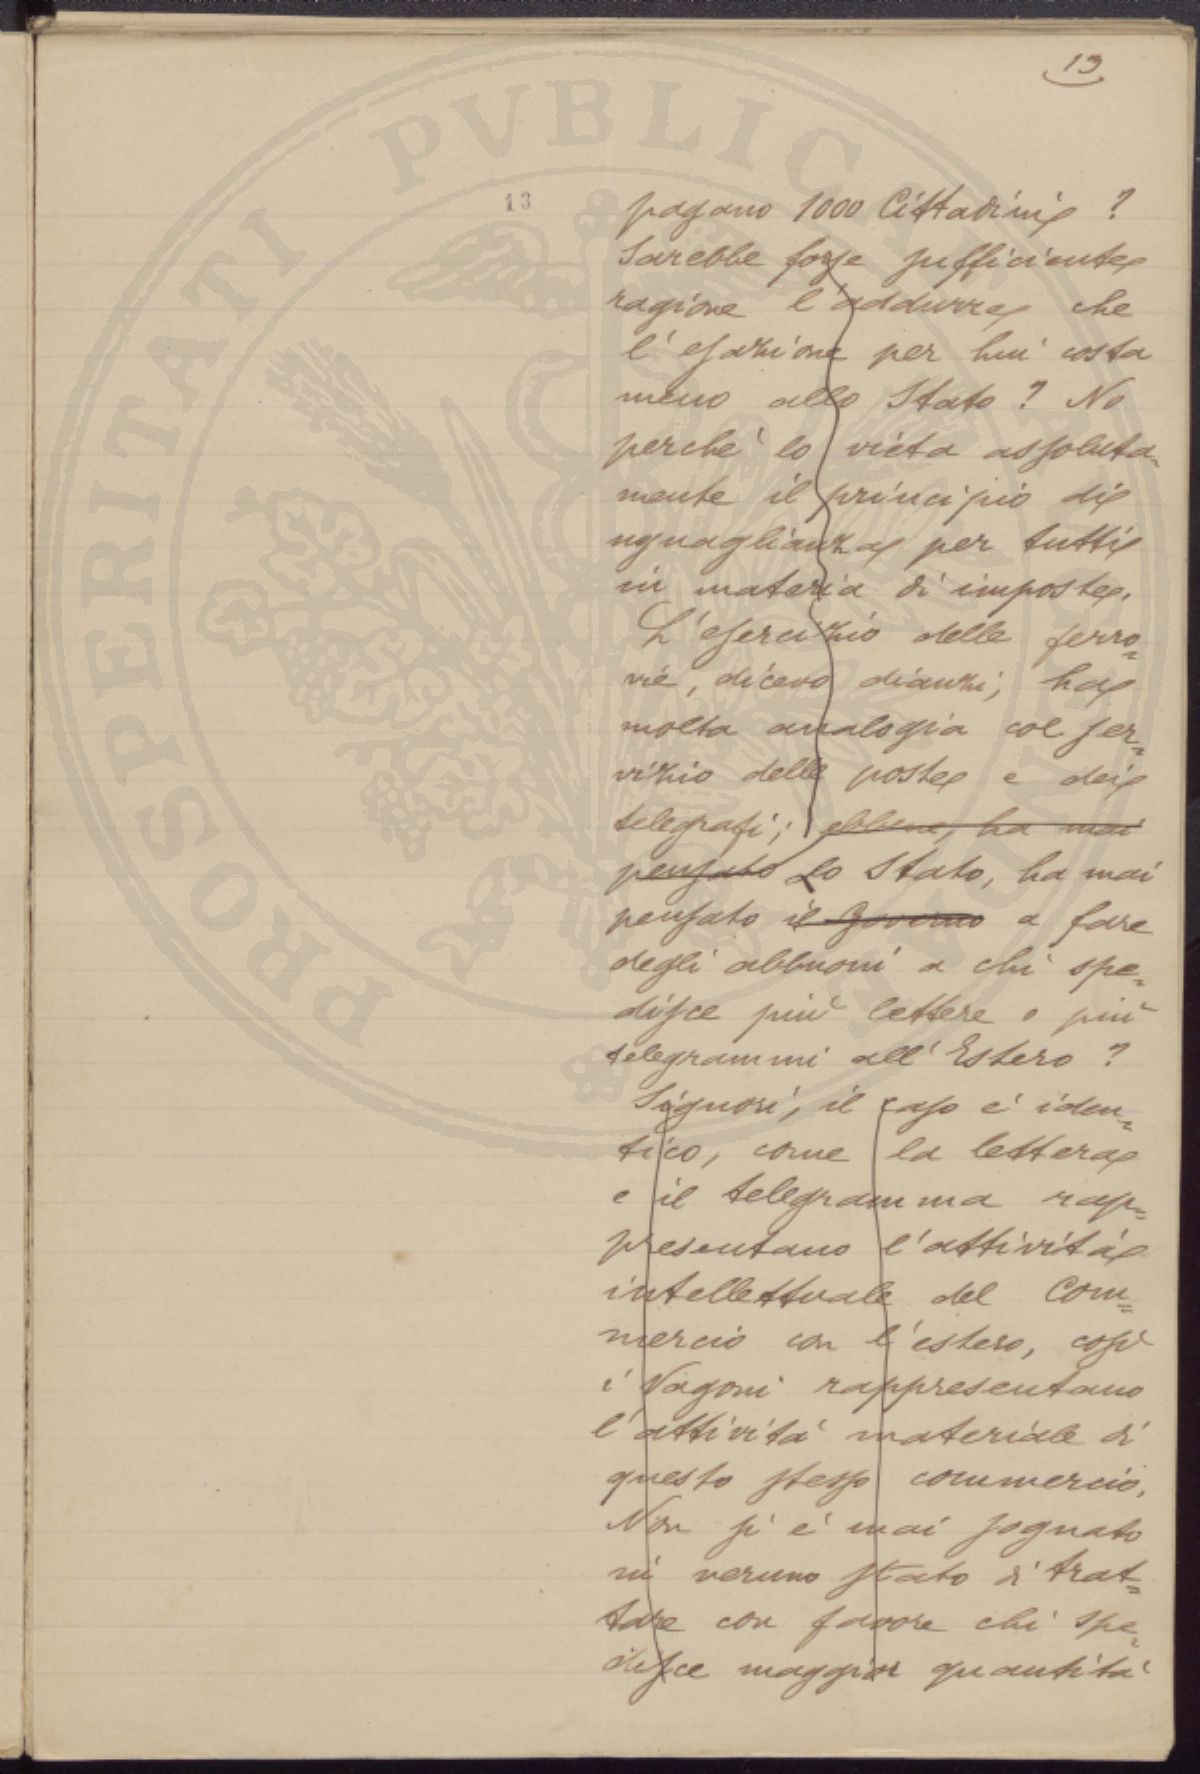 13
13
pagano 1000 Cittadini ?
Sarebbe forse sufficiente
ragione l'addurre che
l'esazione per lui costa
meno allo Stato ? No
perchè lo vieta assoluta=
mente il principio di
uguaglianza per tutti
in materia di imposte.
L'esercizio delle ferro=
vie, dicevo dianzi, ha
molta analogia col ser=
vizio delle poste e dei
telegrafi; ebbene, ha mai
pensato Lo Stato, ha mai
pensato il Governo a fare
degli abbuoni a chi spe=
disce più lettere o più
telegrammi all'Estero ?
Signori, il caso è iden=
tico, come la lettera
e il telegramma rap=
presentano l'attività
intellettuale del Com=
mercio con l'estero, così
i Vagoni rappresentano
l'attività materiale di
questo stesso commercio.
Non si è mai sognato
in veruno stato di trat=
tare con favore chi spe=
disce maggior quantità
PROSPERITATI PVBLICAE